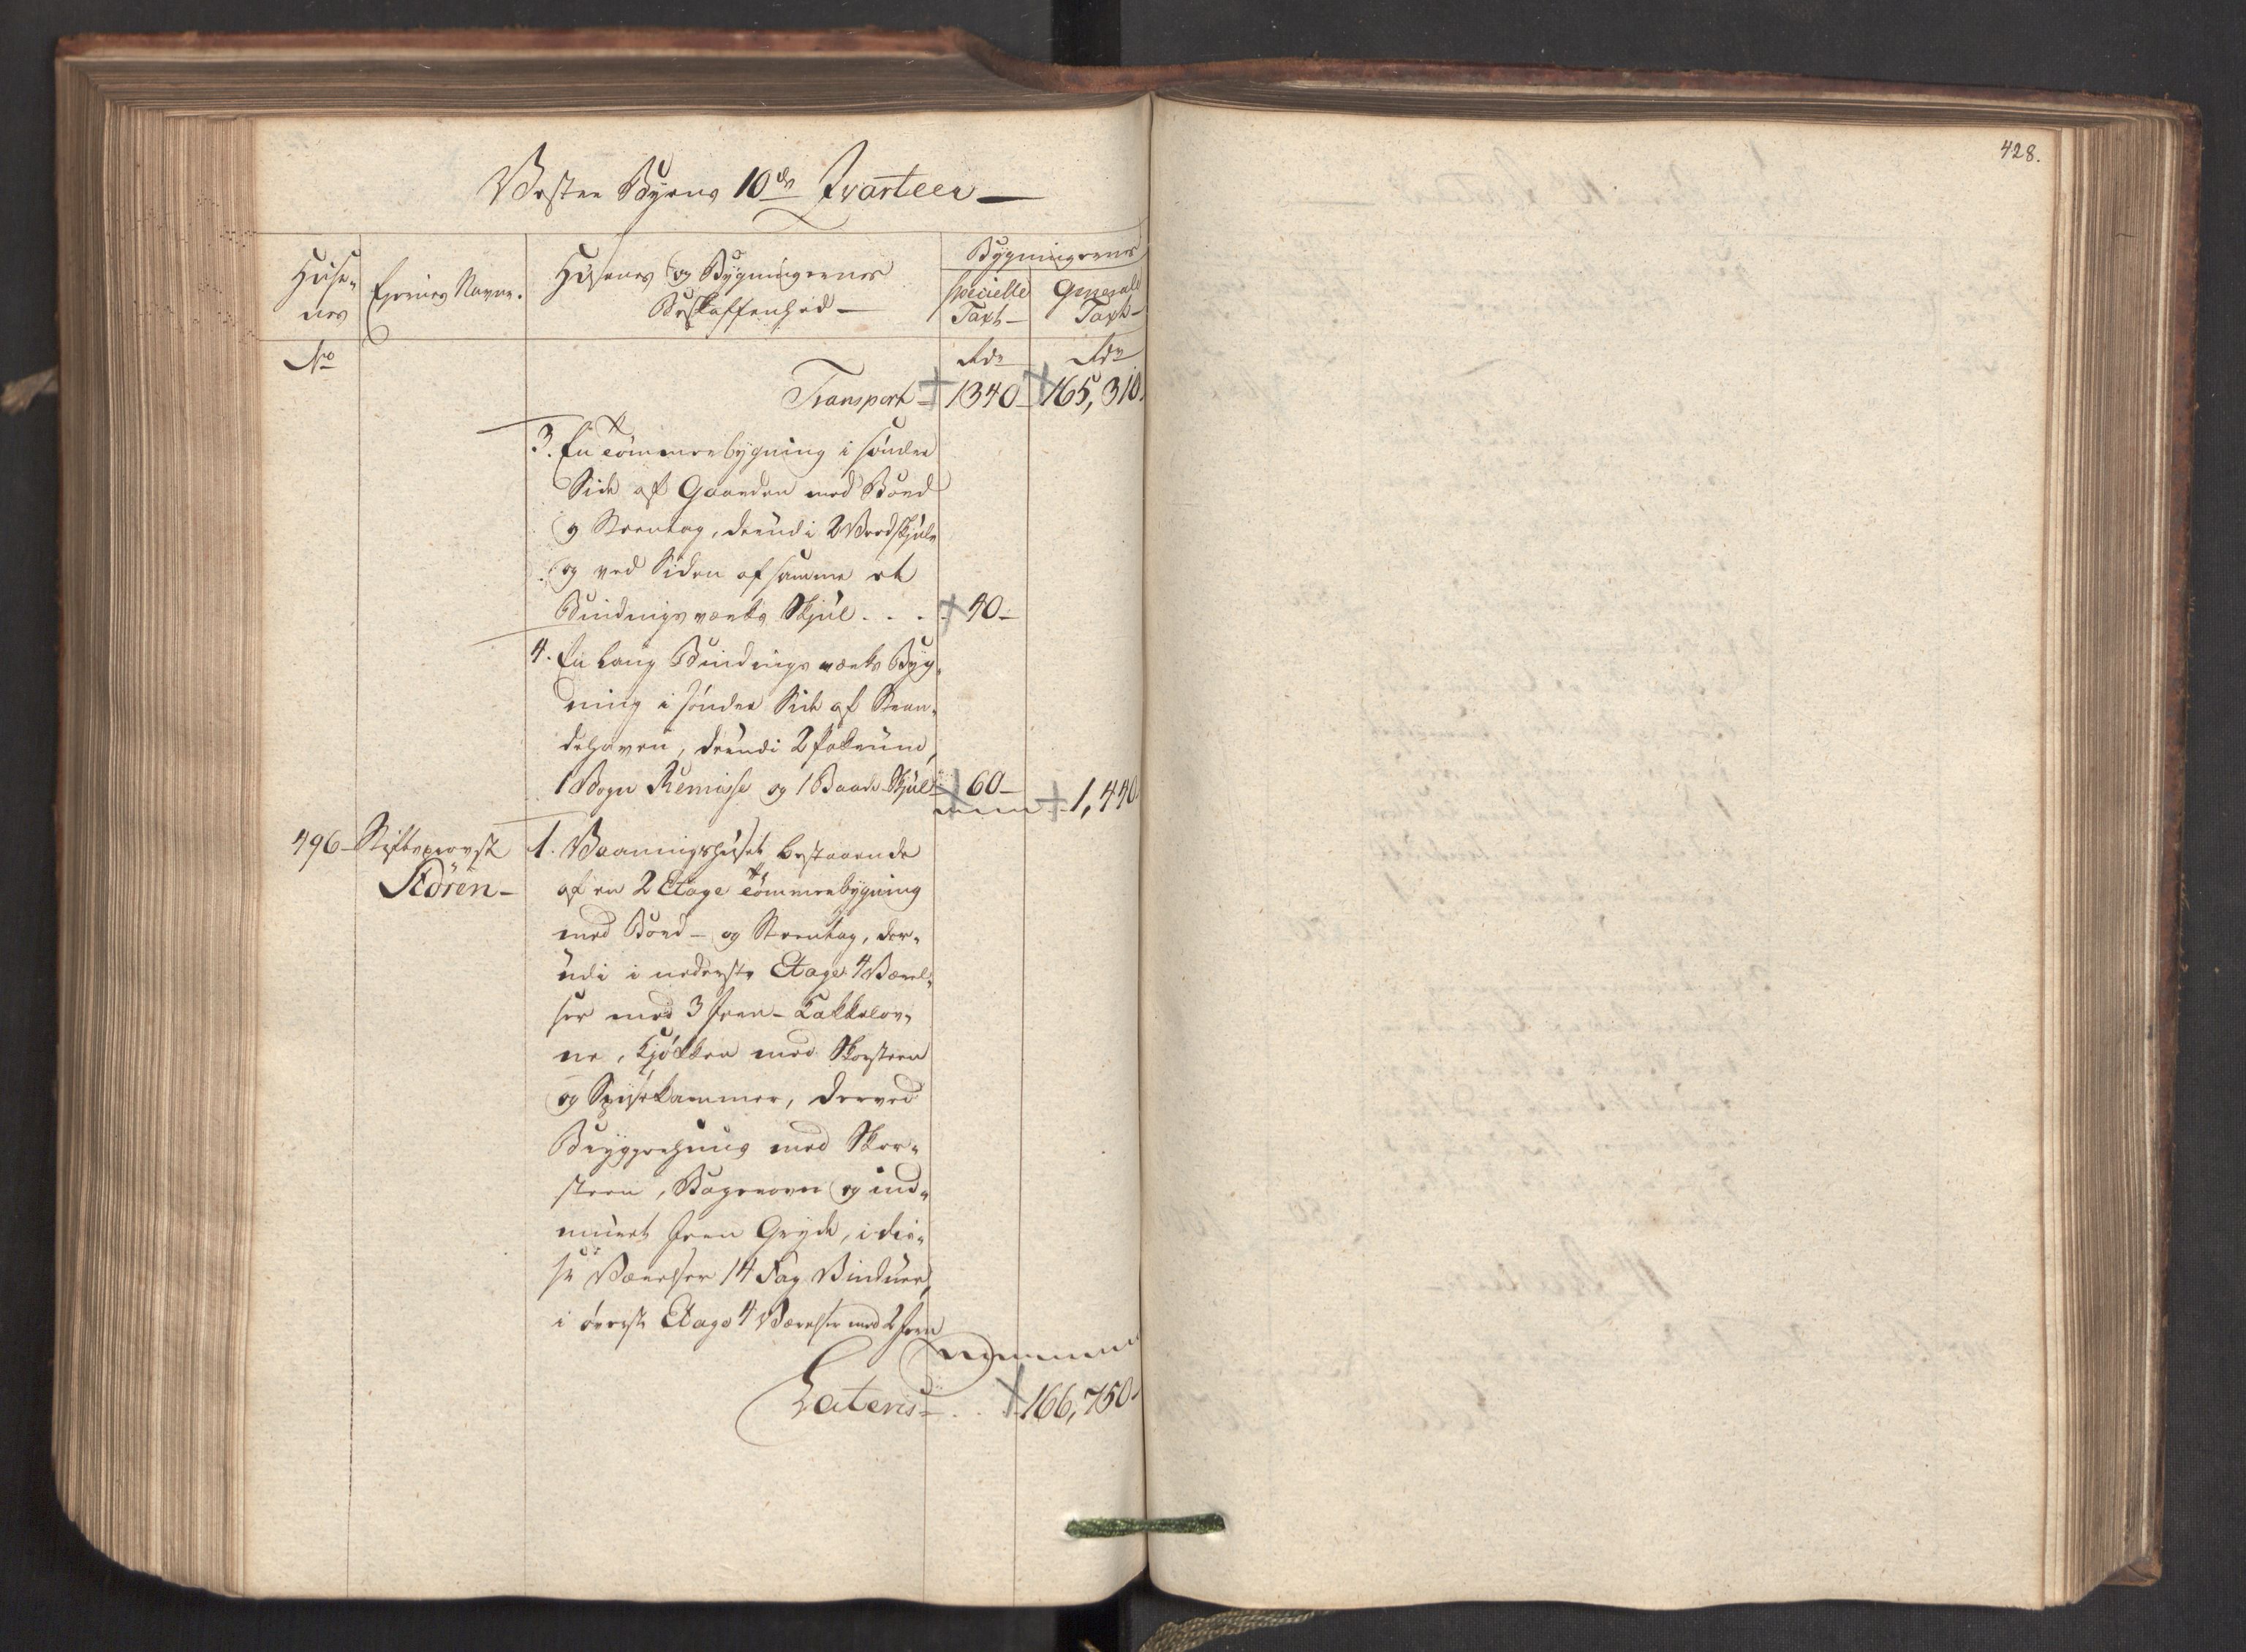 428.
Vester Byens 10de Qvarteer
Huse-
nes
Eyernes Navne.
Husenes og Bygningernes
Beskaffenhed
Bygningernes
specielle
Taxt
General
Taxt
No
Rdr
Rdr
Transport 1340 165,310.
3. En Tömmerbygning i sönder
Side af Gaarden med Bord
og Steentag, derudi 2 Vedskjule
og ved Siden af samme et
Bindingsværks Skjul. . . . 40
4. En lang Bindingsværks Byg-
ning i sönder Side af Stran-
dehaven, derudi 2 Pakrum,
1 Vogn Remisse og 1 Baade Skjul 60
1,440.
496 Stiftsprovst
Stören
1. Vaaningshuset bestaaende
af en 2 Etage Tömmerbygning
med Bord- og Steentag, der-
udi i nederste Etage 4 Værel-
ser med 3 Jern-Kakkelov-
ne, Kjökken med Skorsteen
og Spisekammer, derved
Bryggerhuus med Skor-
steen, Bagerovn og ind-
muret Jern Gryde, i dis-
se Værelser 14 Fag Vinduer,
i överste Etage 4 Værelser med 2 Jern
Lateris . . . 166,750.